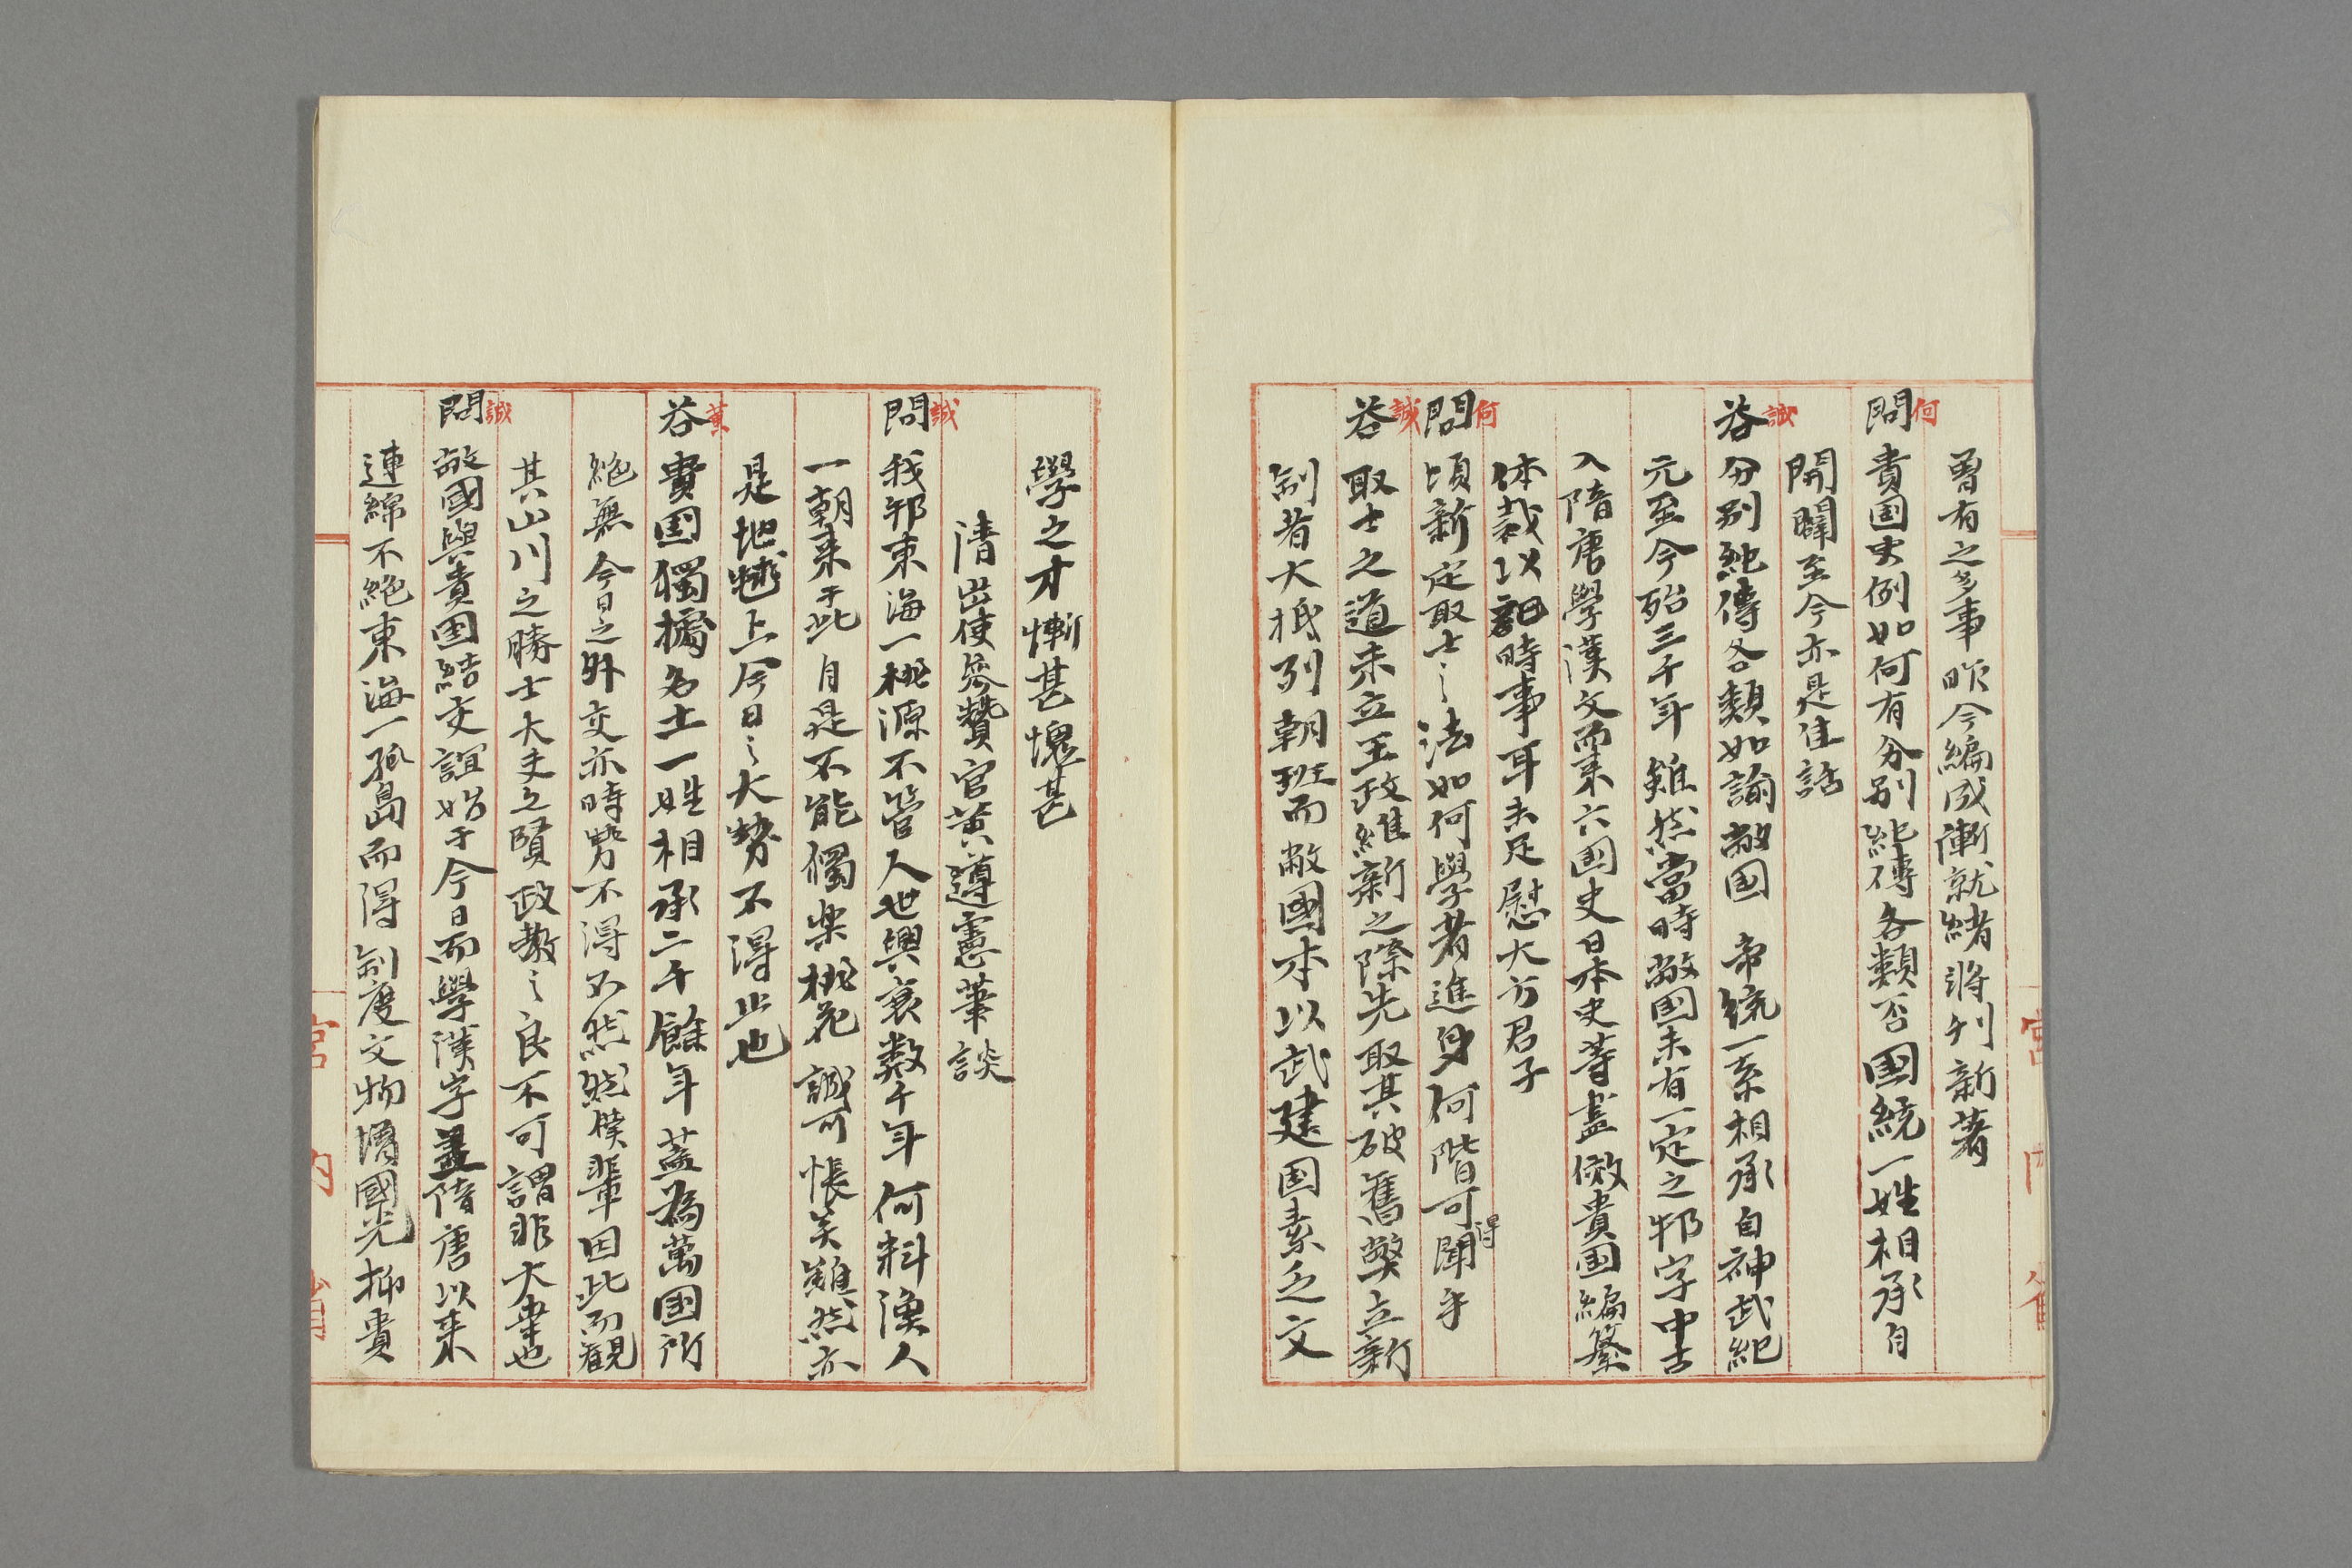 曽有之多事昨今編成漸就緒將刊新著
何
問 貴国史例如何有分別紀傳各類否國統一姓相承自
開闢至今亦是佳話
誠
答 分別紀傳各類如諭敝国 帝統一系相承自神武紀
元至今殆三千年雖然當時敝国未有一定之邦字中古
入隋唐學漢文而来六国史日本史等盡倣貴国編纂
体裁以記時事耳未足慰大方君子
何
問 頃新定取士之法如何學者進身何階可得聞乎
誠
答 取士之道未立王政維新之際先取其破舊弊立新
制者大抵列朝班而敝國本以武建国素乏文
學之才慚甚愧甚
清出使參贊官黄遵憲筆談
誠
問 我邦東海一桃源不管人世興衰数千年何料漁人
一朝来于此自是不能獨樂桃花誠可悵矣雖然亦
是地球上今日之大勢不得止也
黄
答 貴国獨擅名土一姓相承二千餘年蓋為萬国所
絶無今日之外交亦時勢不得不然然僕輩因此而観
其山川之勝士大夫之賢政教之良不可謂非大幸也
誠
問 敝國與貴国結交誼始于今日而學漢字盖隋唐以来
連綿不絶東海一孤島而得制度文物増國光抑貴
宮内省
宮内省